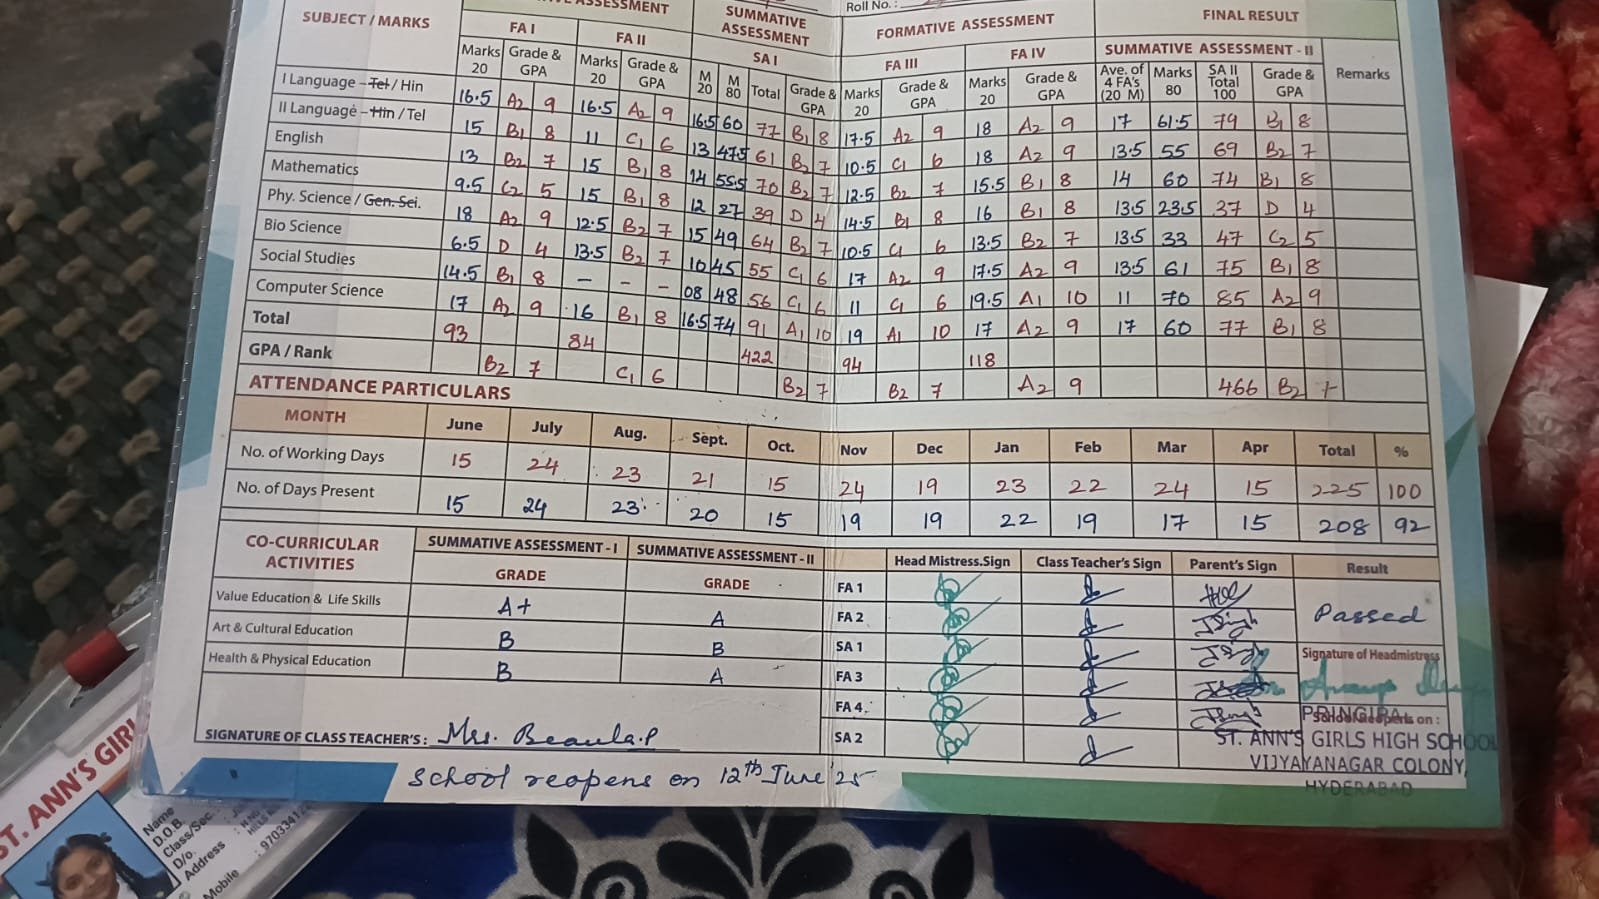 ASSESSMENT SUMMATIVE ASSESSMENT Roll No. :
SUBJECT / MARKS FA I FA II SA I FORMATIVE ASSESSMENT FINAL RESULT
FA III FA IV SUMMATIVE ASSESSMENT - II Remarks
Marks 20 Grade & GPA Marks 20 Grade & GPA M 20 M 80 Total Grade & GPA Marks 20 Grade & GPA Marks 20 Grade & GPA Ave. of 4 FA's (20 M) Marks 80 SA II Total 100 Grade & GPA
I Language - Tel / Hin 16.5 A2 9 16.5 A2 9 16.5 60 77 B1 8 17.5 A2 9 18 A2 9 17 61.5 79 B1 8
II Language - Hin / Tel 15 B1 8 11 C1 6 13 47.5 61 B2 7 10.5 C1 6 18 A2 9 13.5 55 69 B2 7
English 13 B2 7 15 B1 8 14 55.5 70 B2 7 12.5 B2 7 15.5 B1 8 14 60 74 B1 8
Mathematics 9.5 C2 5 15 B1 8 12 27 39 D 4 14.5 B1 8 16 B1 8 13.5 23.5 37 D 4
Phy. Science / Gen. Sci. 18 A2 9 12.5 B2 7 15 49 64 B2 7 10.5 C1 6 13.5 B2 7 13.5 33 47 C2 5
Bio Science 6.5 D 4 13.5 B2 7 10 45 55 C1 6 17 A2 9 17.5 A2 9 13.5 61 75 B1 8
Social Studies 14.5 B1 8 - - - 08 48 56 C1 6 11 C1 6 19.5 A1 10 11 70 85 A2 9
Computer Science 17 A2 9 16 B1 8 16.5 74 91 A1 10 19 A1 10 17 A2 9 17 60 77 B1 8
Total 93 84 422 94 118
GPA / Rank B2 7 C1 6 B2 7 B2 7 A2 9 466 B2 7
ATTENDANCE PARTICULARS
MONTH June July Aug. Sept. Oct. Nov Dec Jan Feb Mar Apr Total %
No. of Working Days 15 24 23 21 15 24 19 23 22 24 15 225 100
No. of Days Present 15 24 23 20 15 19 19 22 19 17 15 208 92
CO-CURRICULAR ACTIVITIES SUMMATIVE ASSESSMENT - I SUMMATIVE ASSESSMENT - II Head Mistress.Sign Class Teacher's Sign Parent's Sign Result
GRADE GRADE
Value Education & Life Skills A+ A FA 1 Passed
Art & Cultural Education B B FA 2
Health & Physical Education B A SA 1 Signature of Headmistress
FA 3
FA 4
SA 2
School Reopens on :
SIGNATURE OF CLASS TEACHER'S : Mrs. Beaula.P
ST. ANN'S GIRLS HIGH SCHOOL
VIJYAYANAGAR COLONY,
HYDERABAD
School reopens on 12th June '25
ST. ANN'S GIRL
Name
D.O.B.
Class/Sec.
D/o.
Address
Mobile